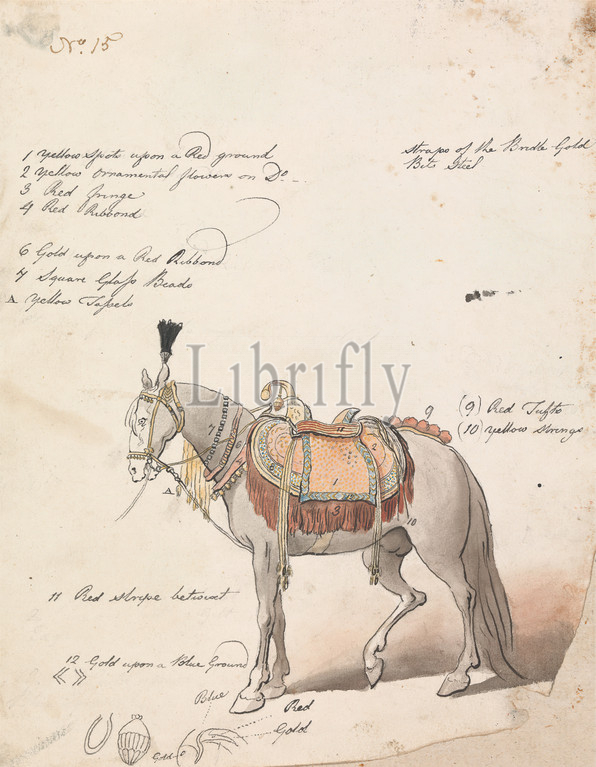 No. 15
1 Yellow Spots upon a Red ground
2 Yellow Ornamental flowers on Do
3 Red fringe
4 Red Ribbond
straps of the Bridle Gold
Bits Steel
6 Gold upon a Red Ribbond
7 Square Glass Beads
A Yellow Tassels
Librifly
(9) Red Tufts
(10) Yellow Strings
9
7
11
2
6
1
3
A
10
11 Red stripe betwixt
12 Gold upon a Blue Ground
Blue
Red
Gold
Gold